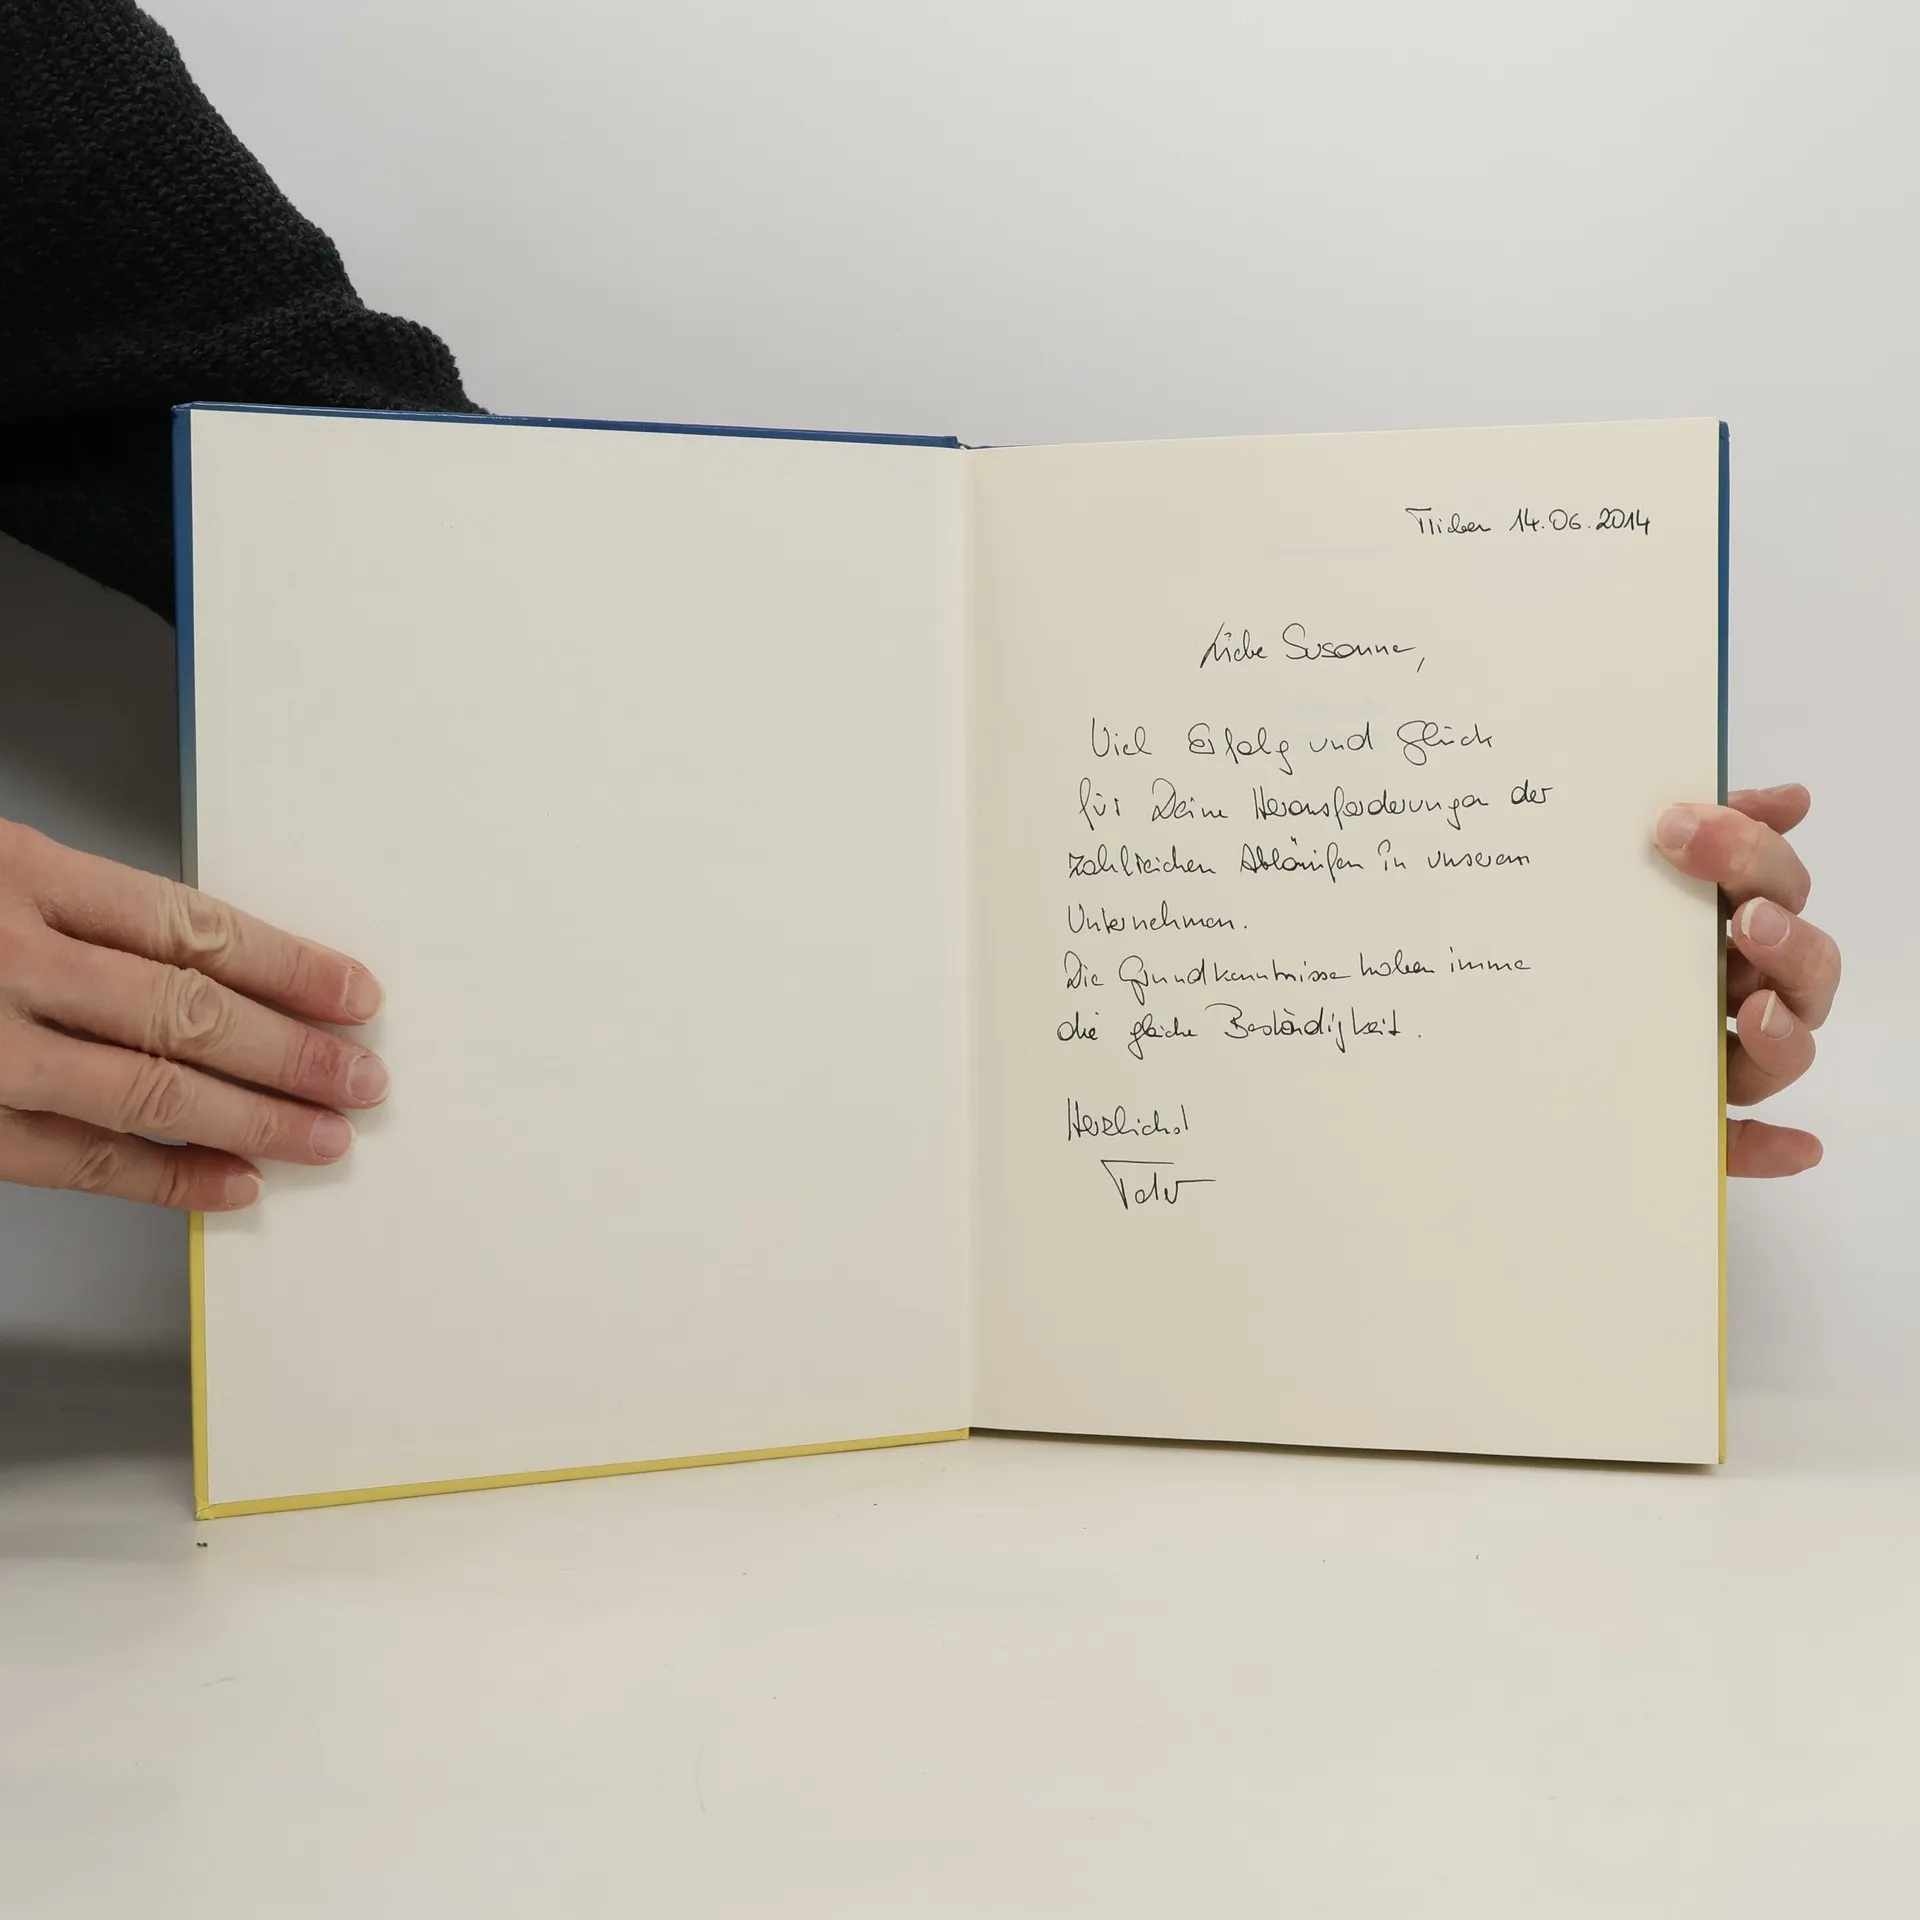 14.06.2014
Liebe Susanne,
Viel Erfolg und Glück
für Deine Herausforderungen der
zahlreichen Abläufen in unserem
Unternehmen.
Die Grundkenntnisse haben imme
die gleiche Beständigkeit.
Herzlichst